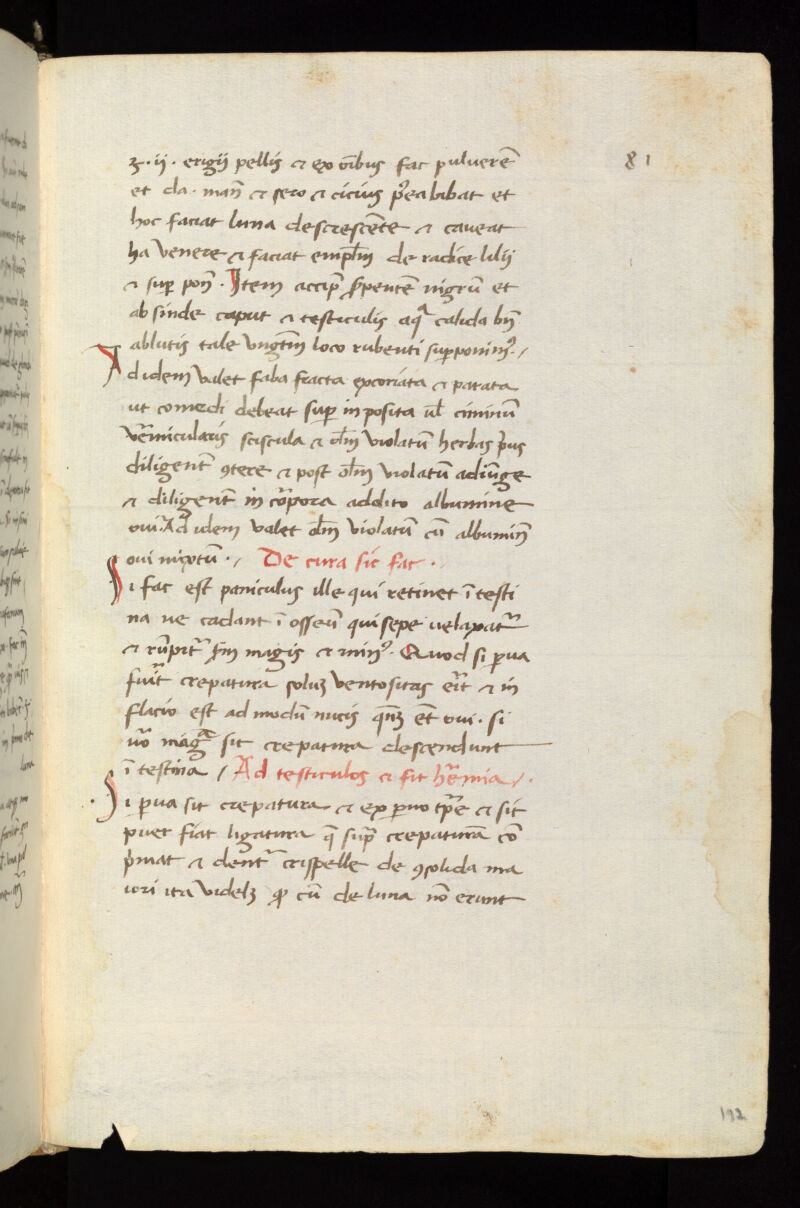 81
ʒ · ij · erigij pellis & ex oībus fac pulverē
et da · man̄ & sero & cicius p̄ea bibat et
hoc faciat luna descrescēte & caveat
ha venere & faciat emplm̄ de radice lilij
& sup pon̄ · Item accip̄ serpentē nigrū et
absinde caput & testiculis aqua calida bn̄
ablutis tale vngtm̄ loco rubenti supponim9 · /
Ad idem valet faba fracta excoriata &
ut comedi debeat sup inposita ul ciminū
vermicularis & olm̄ violatū herbas prius
diligent̄ 9tere & post olm̄ violatū adiūge
& diligent̄ in corpora addito albumine
oui · Ad idem valet olm̄ violatū cū albumin̄
oui mixtū · / De cura sic fac ·
Si fac est paniculus ille qui retinet ītesti
na ne cadant ī osseū qui sepe relaxatur
& rūpitur sm̄ magis & min9 · Quod si parua
fuerit crepatura ventositas erit & in
flacio est ad modū nucis qn̄ʒ et̄ oui · si
uō magna sit crepatura descendunt
ītestina / Ad testiculos & fit hernia / ·
Si parua sit crepatura & ex paruo tp̄re & sit
puer fiat ligatura que supra crepaturā cō
primat & dentur crispelle de 9solida ma
iori ita videlʒ qd cū de luna nō erunt
192